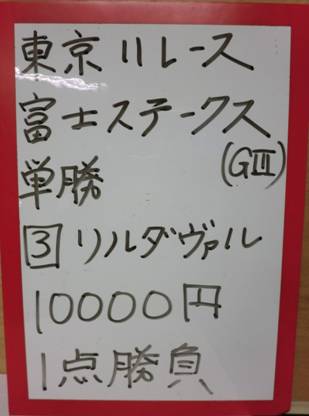 東京11レース
富士ステークス
(GⅢ)
単勝
3 リルダヴァル
10000円
1点勝負